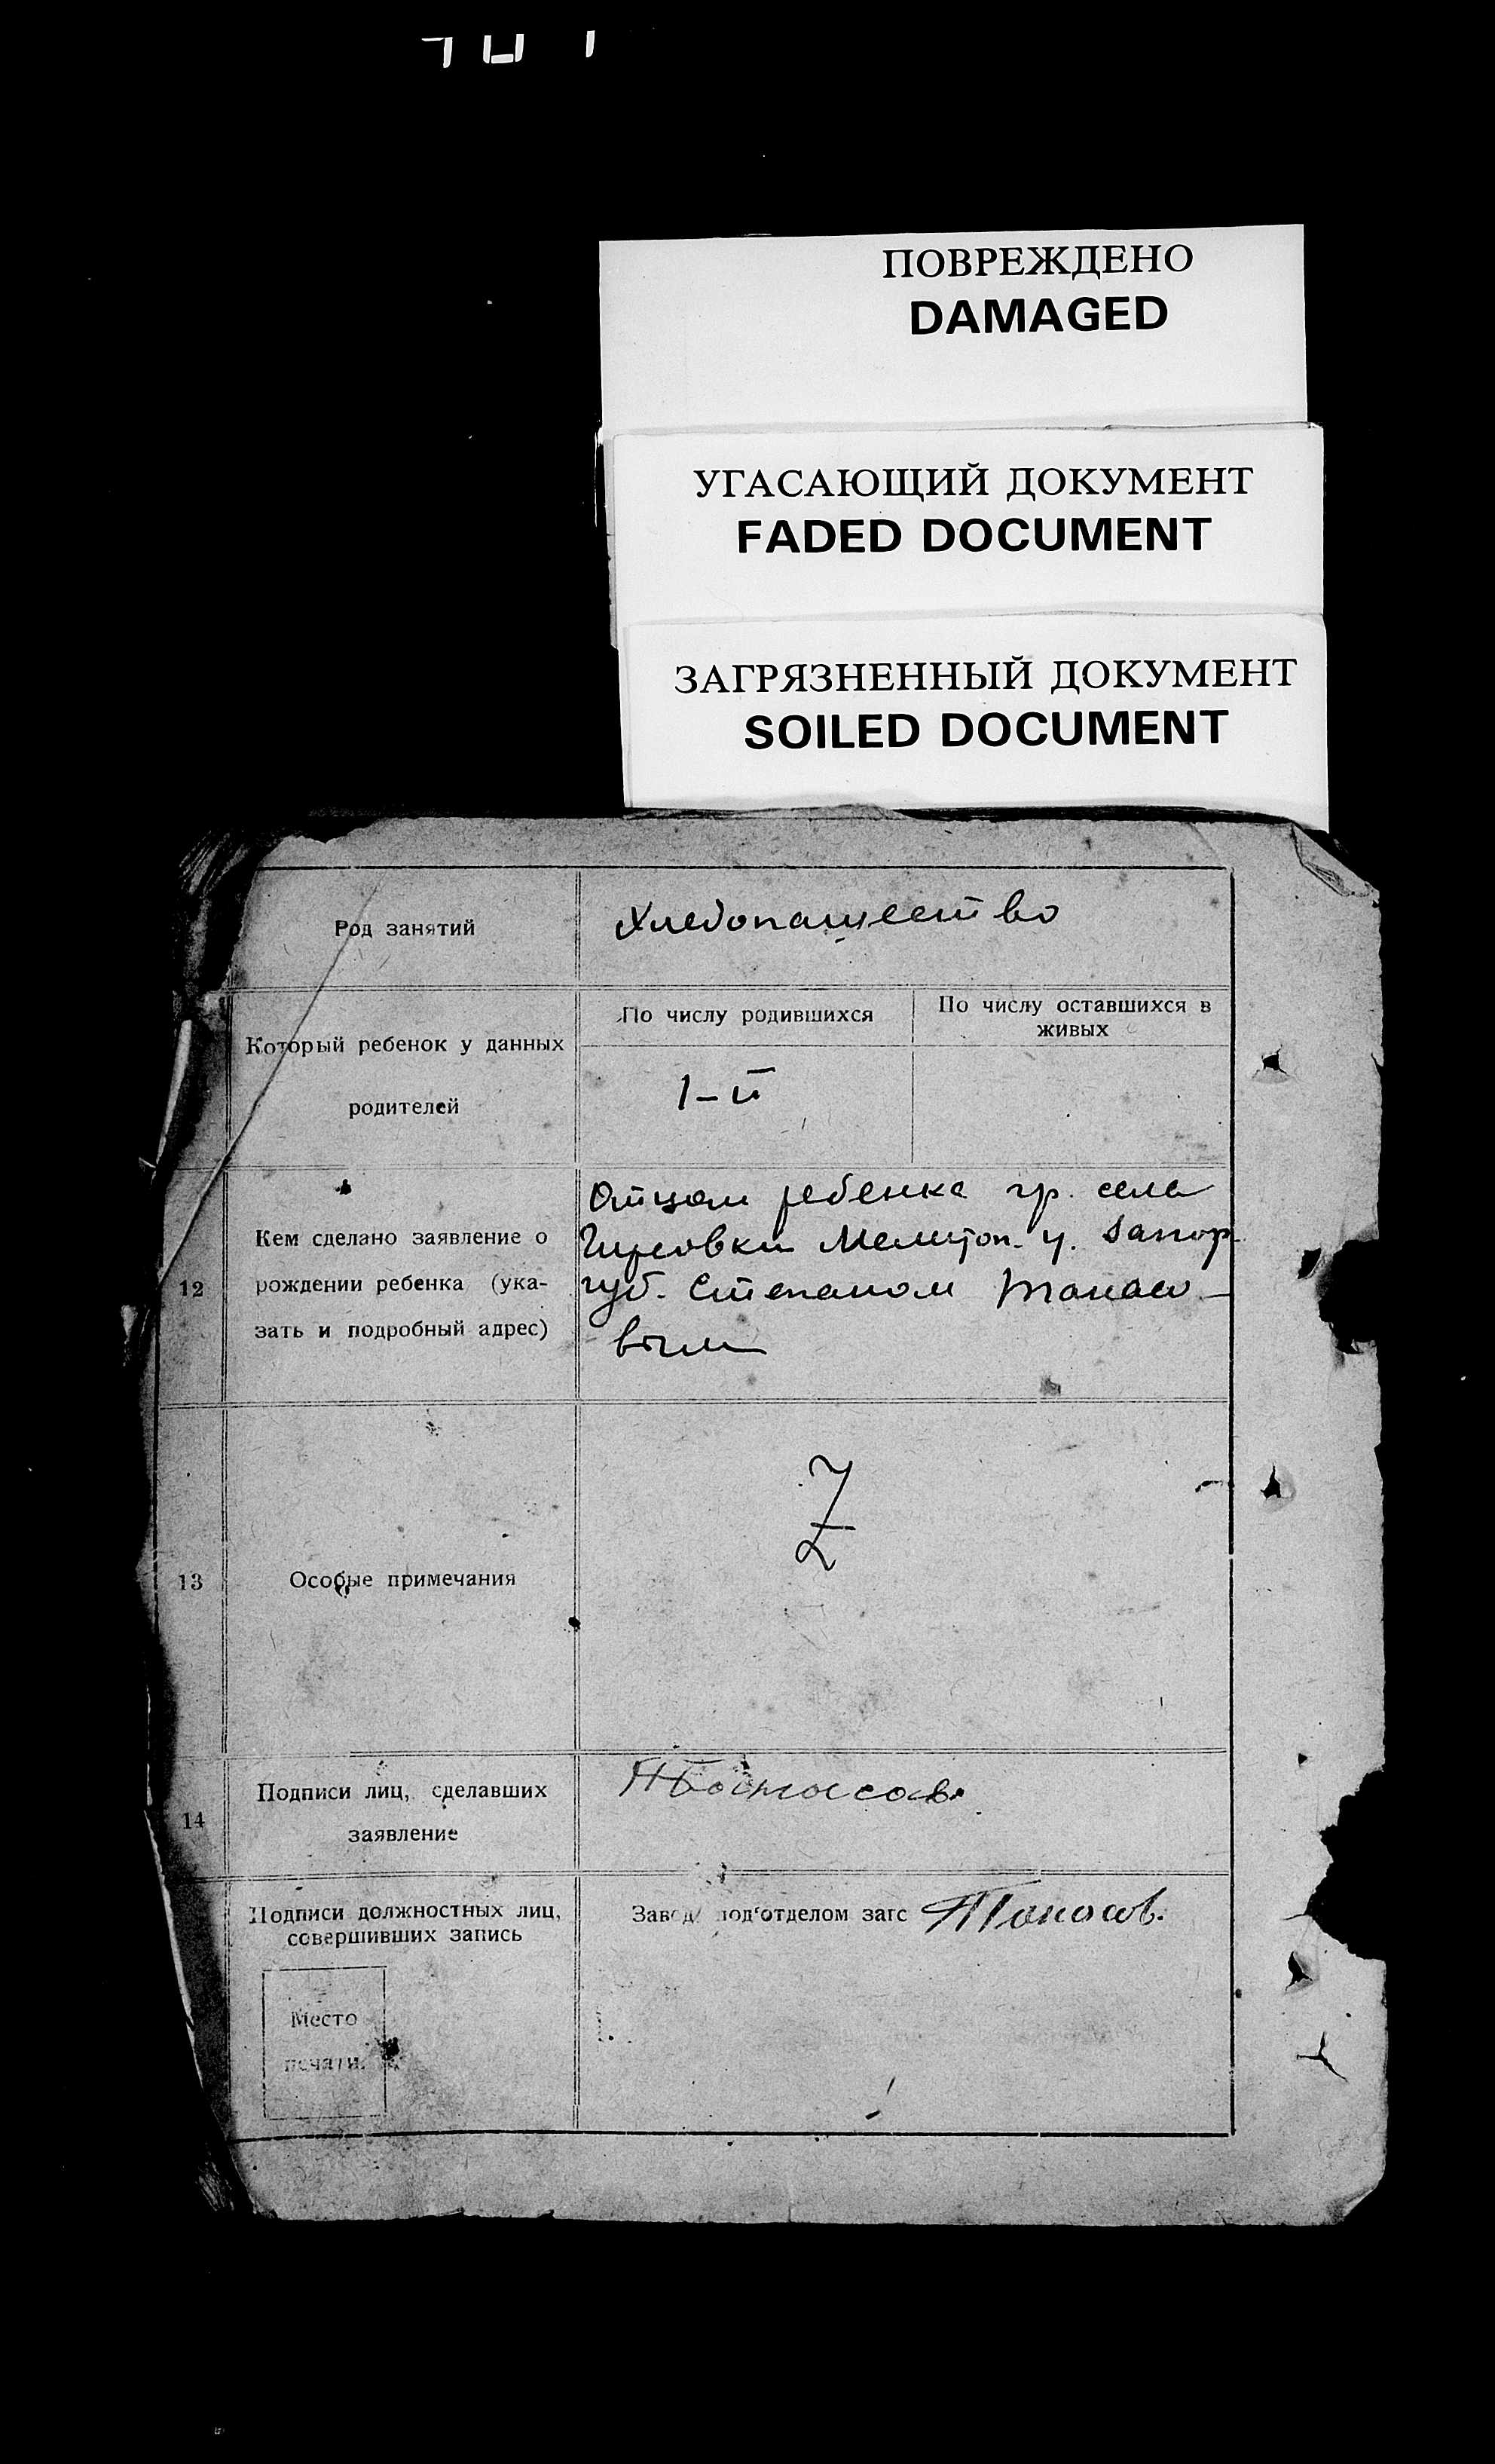 ПОВРЕЖДЕНО
DAMAGED
УГАСАЮЩИЙ ДОКУМЕНТ
FADED DOCUMENT
ЗАГРЯЗНЕННЫЙ ДОКУМЕНТ
SOILED DOCUMENT
Род занятий
Хлебопашество
Который ребенок у данных
родителей
По числу родившихся
По числу оставшихся в
живых
1-й
12
Кем сделано заявление о
рождении ребенка (ука-
зать и подробный адрес)
Отцом ребенка гр. села
Гирсовки Мелитоп. у. Запор.
губ. Степаном Танасо-
вым
13
Особые примечания
Z
14
Подписи лиц, сделавших
заявление
Подписи должностных лиц,
совершивших запись
Завед. подотделом загс Танасов.
Место
печати.